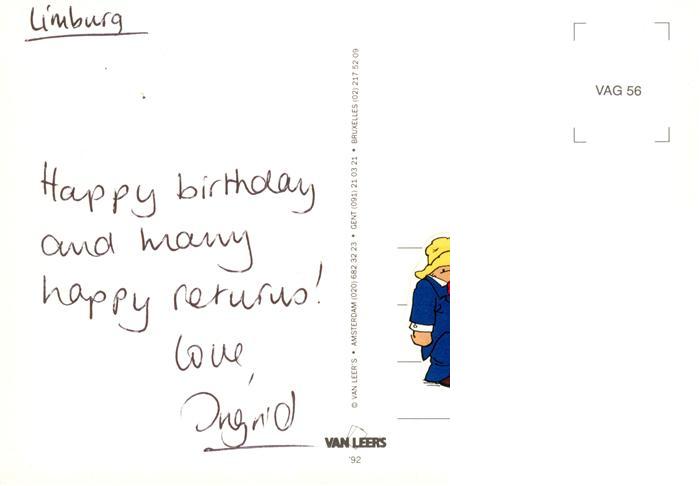 Limburg
Happy birthday
and many
happy returns!
Love,
Ingrid
© VAN LEER'S • AMSTERDAM (020) 682 32 23 • GENT (091) 21 03 21 • BRUXELLES (02) 217 52 09
VAN LEERS
'92
VAG 56